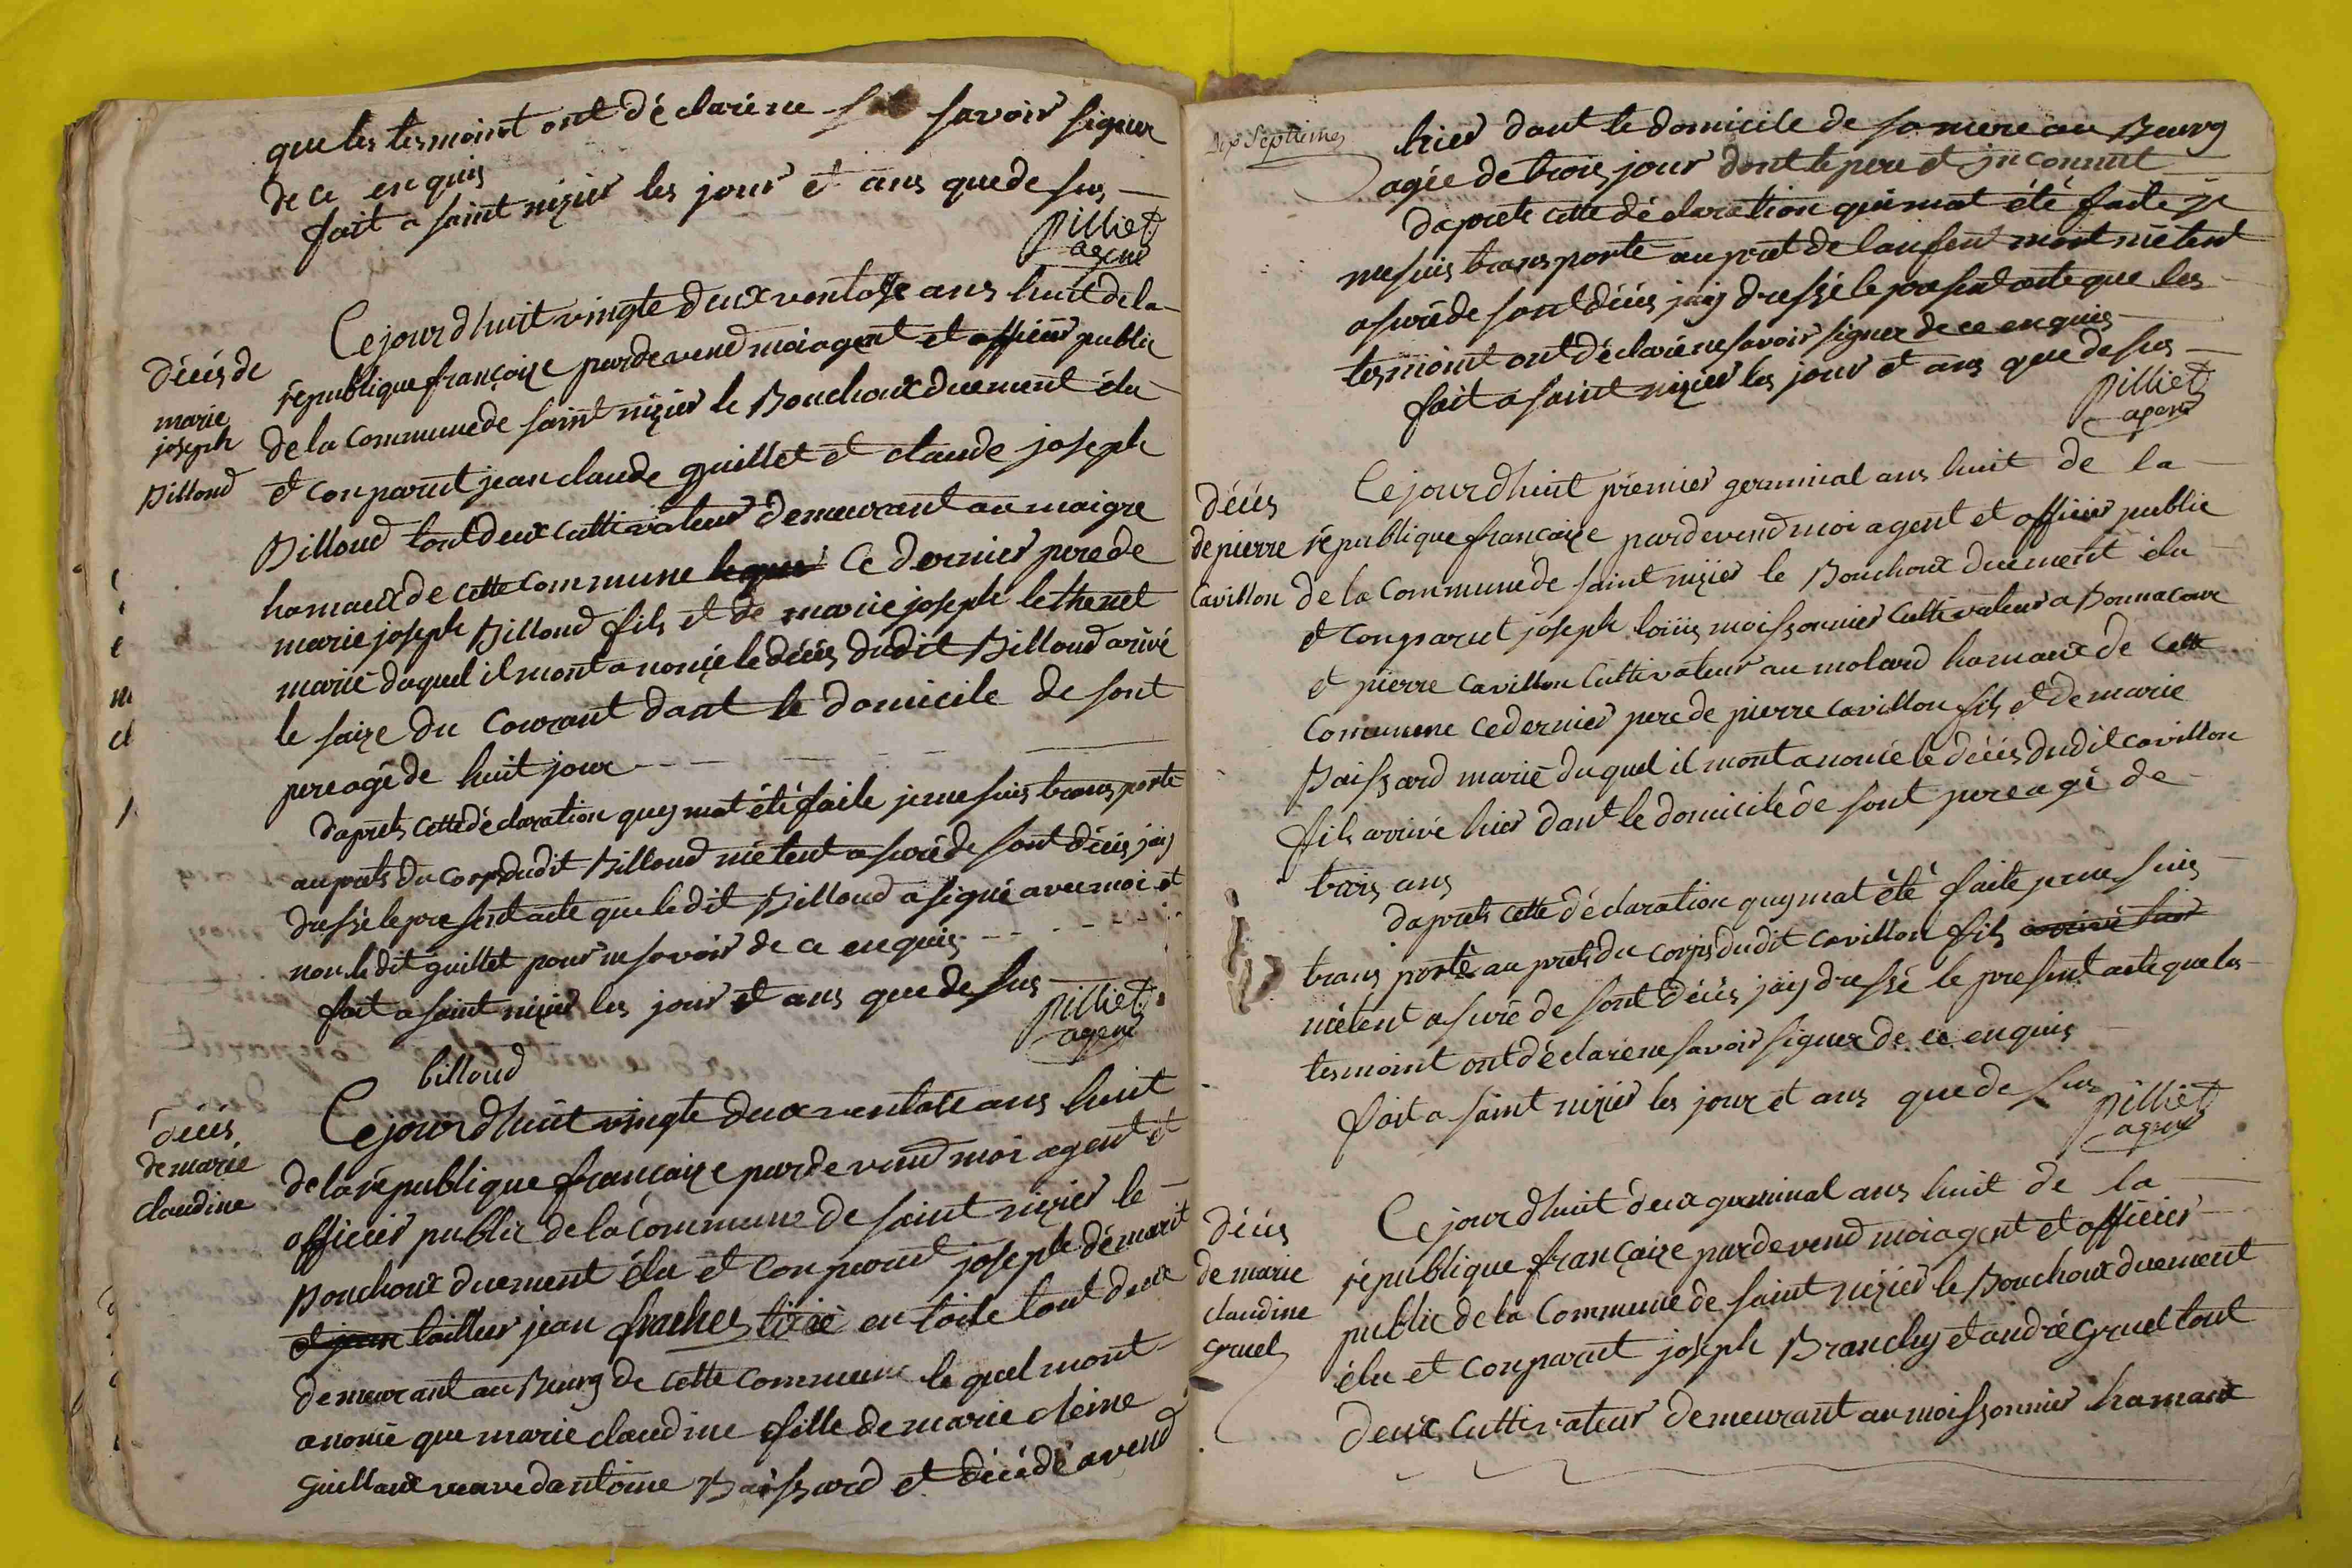 que les tesmoint ont déclaré ne savoir signer
de ce enquis
fait a saint nizier les jour et ans que de sus
pilliet
agent
Décés de
marie
joseph
Billoud
Ce jour dhuit vingte deux ventosse ans huit de la
républiquefrançoize pardevend moi agent et officier public
de la Commune de saint nizier le Bouchoux duement élu
et conparut jean claude guillet et claude joseph
Billoud tout deux cultivateur demeurant au maigre
hamaux de cette commune lequel Ce dernier pere de
marie joseph Billoud fils et de marie joseph lethenet
marié duquel il mont anoncé le décés dudit Billoud arivé
le saize du Courant dant le domicile de sont
pere agé de huit jour
daprets cette déclaration quy mat été faite je me suis transporté
auprets du corps dudit Billoud métent asuré de sont décés jaiy
dressé le present acte que le dit Billoud a signé avec moi et
non le dit guillet pour ne savoir de ce enquis
fait a saint nizier les jour et ans que de sus
pilliet
agent
billoud
décés
de marie
claudine
Ce jour dhuit vingte deux ventose ans huit
de la république francaize pardevend moi agent et
officier public de la Commune de saint nizier le
Bouchoux duement élu et conparut joseph démarit
et jean tailleur jean frachet tixié en toile tout deux
demeurant au Bourg de cette commune le quel mont
anoncé que marie claudine fille de marie cleine
guillaut veuve dantoine Baissard et décédé avend
dix septieme
hier dant le domicile de sa mere au Bourg
agée de trois jour dont le pere et inconnut
daprets cette déclaration qui mat été faite je
me suis transporté au prêt de lanfent mort métent
asuré de sont décés jaiy dressé le present acte que les
tesmoint ont déclaré ne savoir signer de ce enquis
fait a saint nizier les jour et ans que de sus
pilliet
agent
décés
de pierre
Cavillon
Ce jour dhuit premier germinal ans huit de la
république francaize pardevend moi agent et officier public
de la Commune de saint nizier le Bouchoux duement élu
et conparut joseph loüis moissonnier Cultivateur a Bonnacour
et pierre Cavillon Cultivateur au molard hamaux de cette
Commune ce dernier pere de pierre cavillon fils et de marie
Baissard marié duquel il mont anoncé le décés dudit cavillon
fils arrivé hier dant le domicile de sont pere agé de
trois ans
daprets cette déclaration quy mat été faite je me suis
transporté au prets du corps dudit cavillon fils arrivé hier
métent asuré de sont décés jaiy dressé le present acte que les
tesmoint ont déclaré ne savoir signer de ce enquis
fait a saint nizier les jour et ans que de sus
pilliet
agent
décés
de marie
claudine
gruel
Ce jour dhuit deux germinal ans huit de la
république françaize pardevend moi agent et officier
public de la Commune de saint nizier le Bouchoux duement
élu et conparut joseph Branchy et andré Gruel tout
deux Cultivateur demeurant au moissonnier hamaux